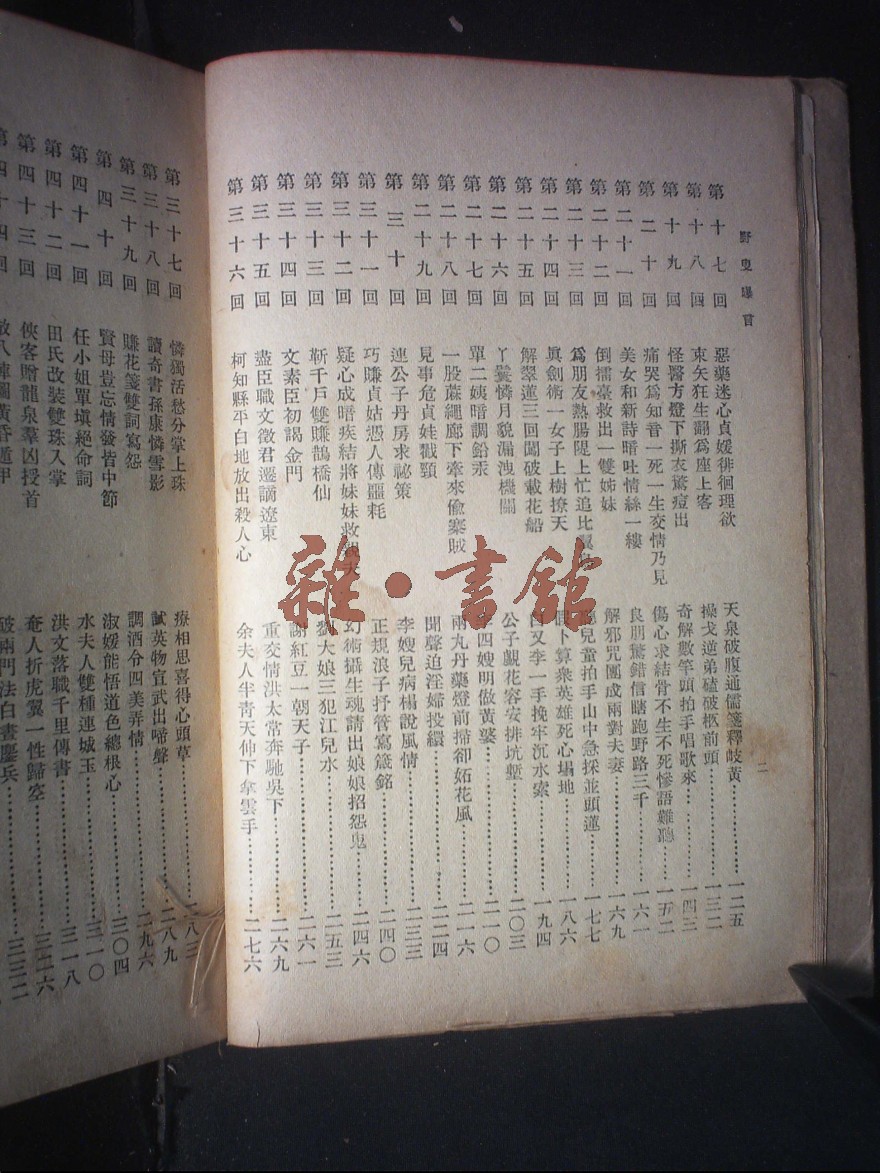 野叟曝言
第十七回 惡藥迷心貞媛徘徊理欲 天泉破腹通儒箋釋岐黃 一二五
第十八回 束矢狂生翻爲座上客 操戈逆弟磕破柩前頭 一三二
第十九回 怪醫方燈下撕衣驚痘出 奇解數竿頭拍手唱歌來 一四三
第二十回 痛哭爲知音一死一生交情乃見 傷心求結骨不生不死慘語難聽 一五二
第二十一回 美女和新詩暗吐情絲一縷 良朋驚錯信瞎跑野路三千 一六一
第二十二回 倒擂臺救出一雙姊妹 解邪咒團成兩對夫妻 一六九
第二十三回 爲朋友熱腸隄上忙追比翼 兒童拍手山中急採並頭蓮 一七七
第二十四回 眞劍術一女子上樹撩天 卜算衆英雄死心塌地 一八六
第二十五回 解翠蓮三回闖破載花船 又李一手挽牢沉水索 一九四
第二十六回 丫鬟憐月貌漏洩機關 公子覷花容安排坑塹 二〇三
第二十七回 單二姨暗調鉛汞 四嫂明做黃婆 二一〇
第二十八回 一股蔴繩廊下牽來偷寨賊 兩丸丹藥燈前掃卻妬花風 二一六
第二十九回 見事危貞娃戳頸 聞聲迫淫婦投繯 二二四
第三十回 連公子丹房求祕策 李嫂兒病榻說風情 二三三
第三十一回 巧賺貞姑憑人傳噩耗 正規浪子抒管寫箴銘 二四〇
第三十二回 疑心成暗疾結將妹妹救親夫 幻術攝生魂請出娘娘招怨鬼 二四六
第三十三回 靳千戶雙賺鵲橋仙 劉大娘三犯江兒水 二五三
第三十四回 文素臣初謁金門 謝紅豆一朝天子 二六一
第三十五回 盡臣職文徵君遷謫遼東 重交情洪太常奔馳吳下 二六九
第三十六回 柯知縣平白地放出殺人心 余夫人半青天伸下拿雲手 二七六
二
第三十七回 憐獨活愁分掌上珠 療相思喜得心頭草 二八三
第三十八回 讀奇書孫康憐雪影 試英物宣武出啼聲 二八九
第三十九回 賺花箋雙詞寫怨 調酒令四美弄情 二九六
第四十回 賢母豈忘情發皆中節 淑媛能悟道色總根心 三〇四
第四十一回 任小姐單塡絕命詞 水夫人雙種連城玉 三一〇
第四十二回 田氏改裝雙珠入掌 洪文落職千里傳書 三一八
第四十三回 俠客贈龍泉羣凶授首 奄人折虎翼一性歸空 三二六
第四十四回 八陣圖黃昏遁甲 破兩門法白晝鏖兵 三三二
雜·書館